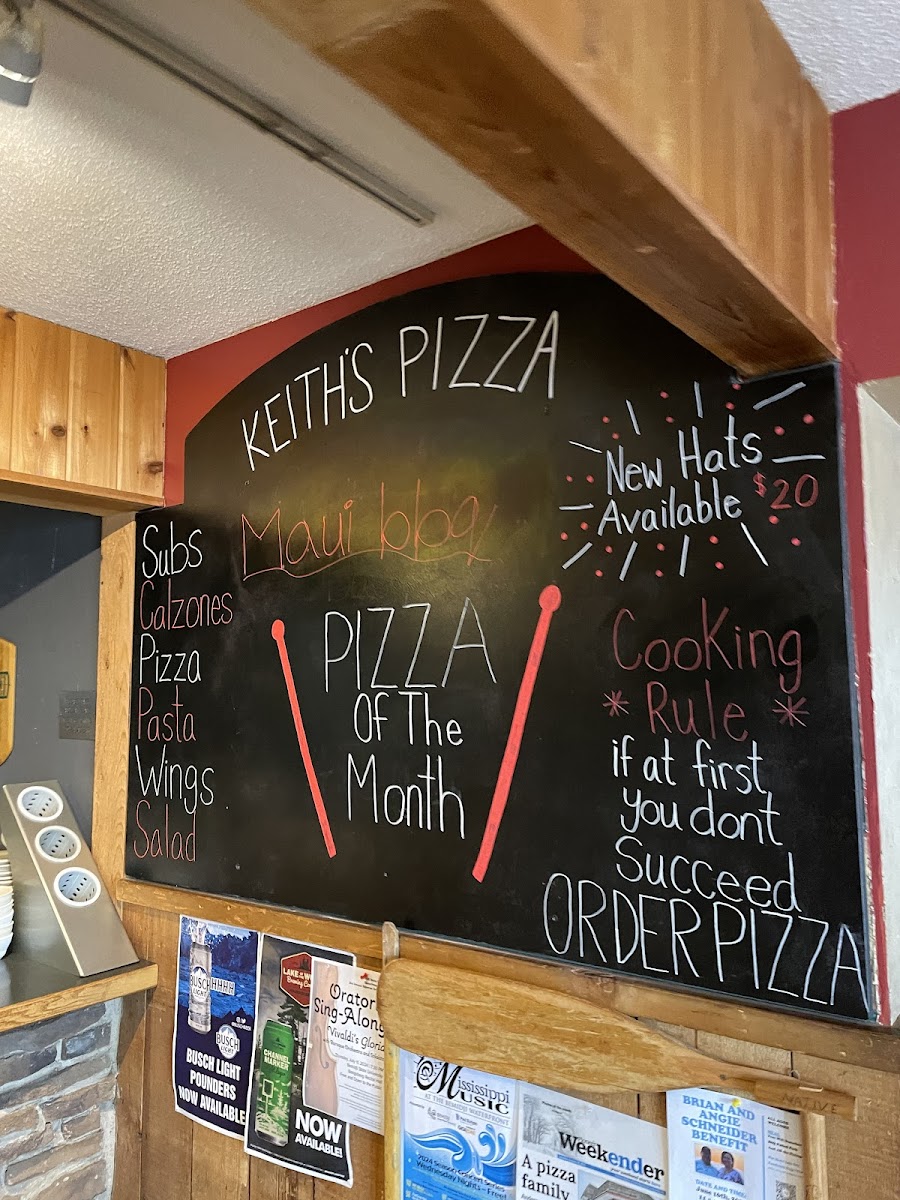 KEITH'S PIZZA
Maui bbq
New Hats
Available $20
Subs
Calzones
Pizza
Pasta
Wings
Salad
PIZZA
Of The
Month
Cooking
* Rule *
if at first
you dont
Succeed
ORDER PIZZA
BUSCH
LIGHT
BUSCH LIGHT
POUNDERS
NOW AVAILABLE
CHANNEL
MARKER
NOW
AVAILABLE!
Sing-Along
Vivaldi's Gloria
NATIVE
Mississippi
MUSIC
AT THE BEMIDJI WATERFRONT
2024 Season Concert Series
Wednesday Nights - Free!
Weekender
A pizza
family
BRIAN AND
ANGIE
SCHNEIDER
BENEFIT
DATE AND TIME